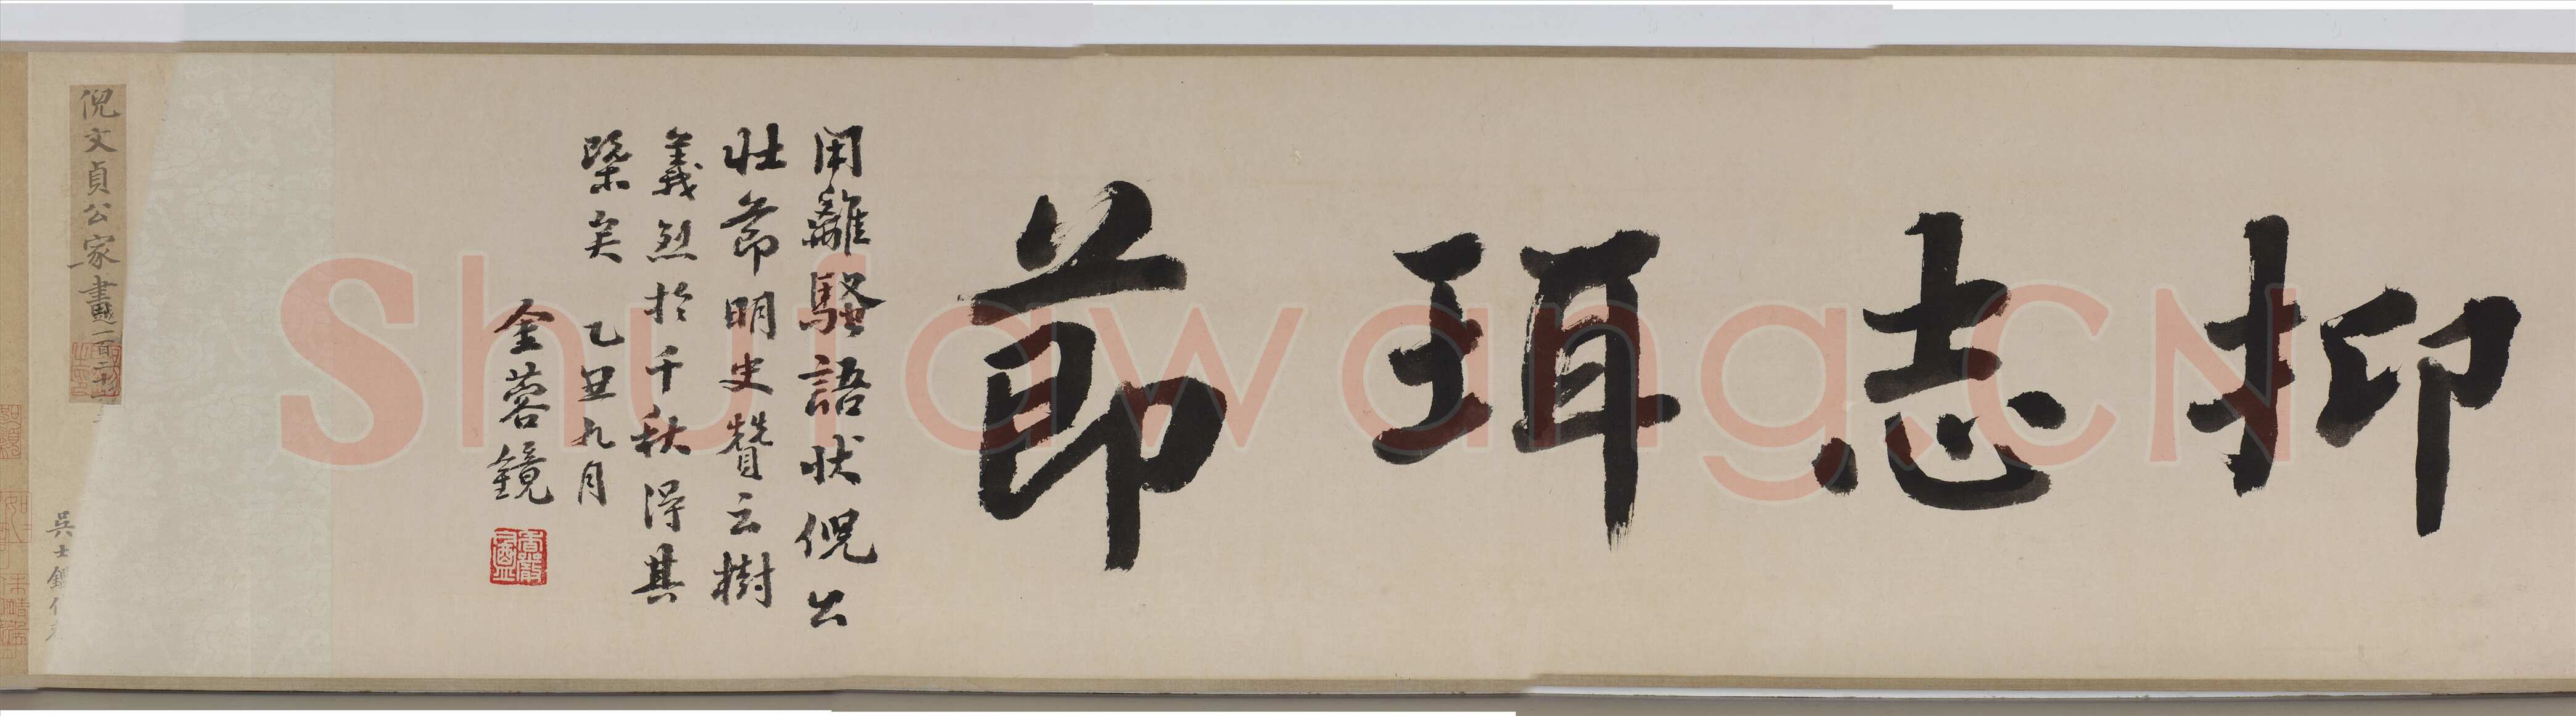 抑志珥節
用離騷語狀倪公
壯節明史贊云樹
義烈於千秋得其
槩矣 乙丑九月
金蓉鏡
香嚴
倪文貞公家書
吳士鑑
Shufawang.CN